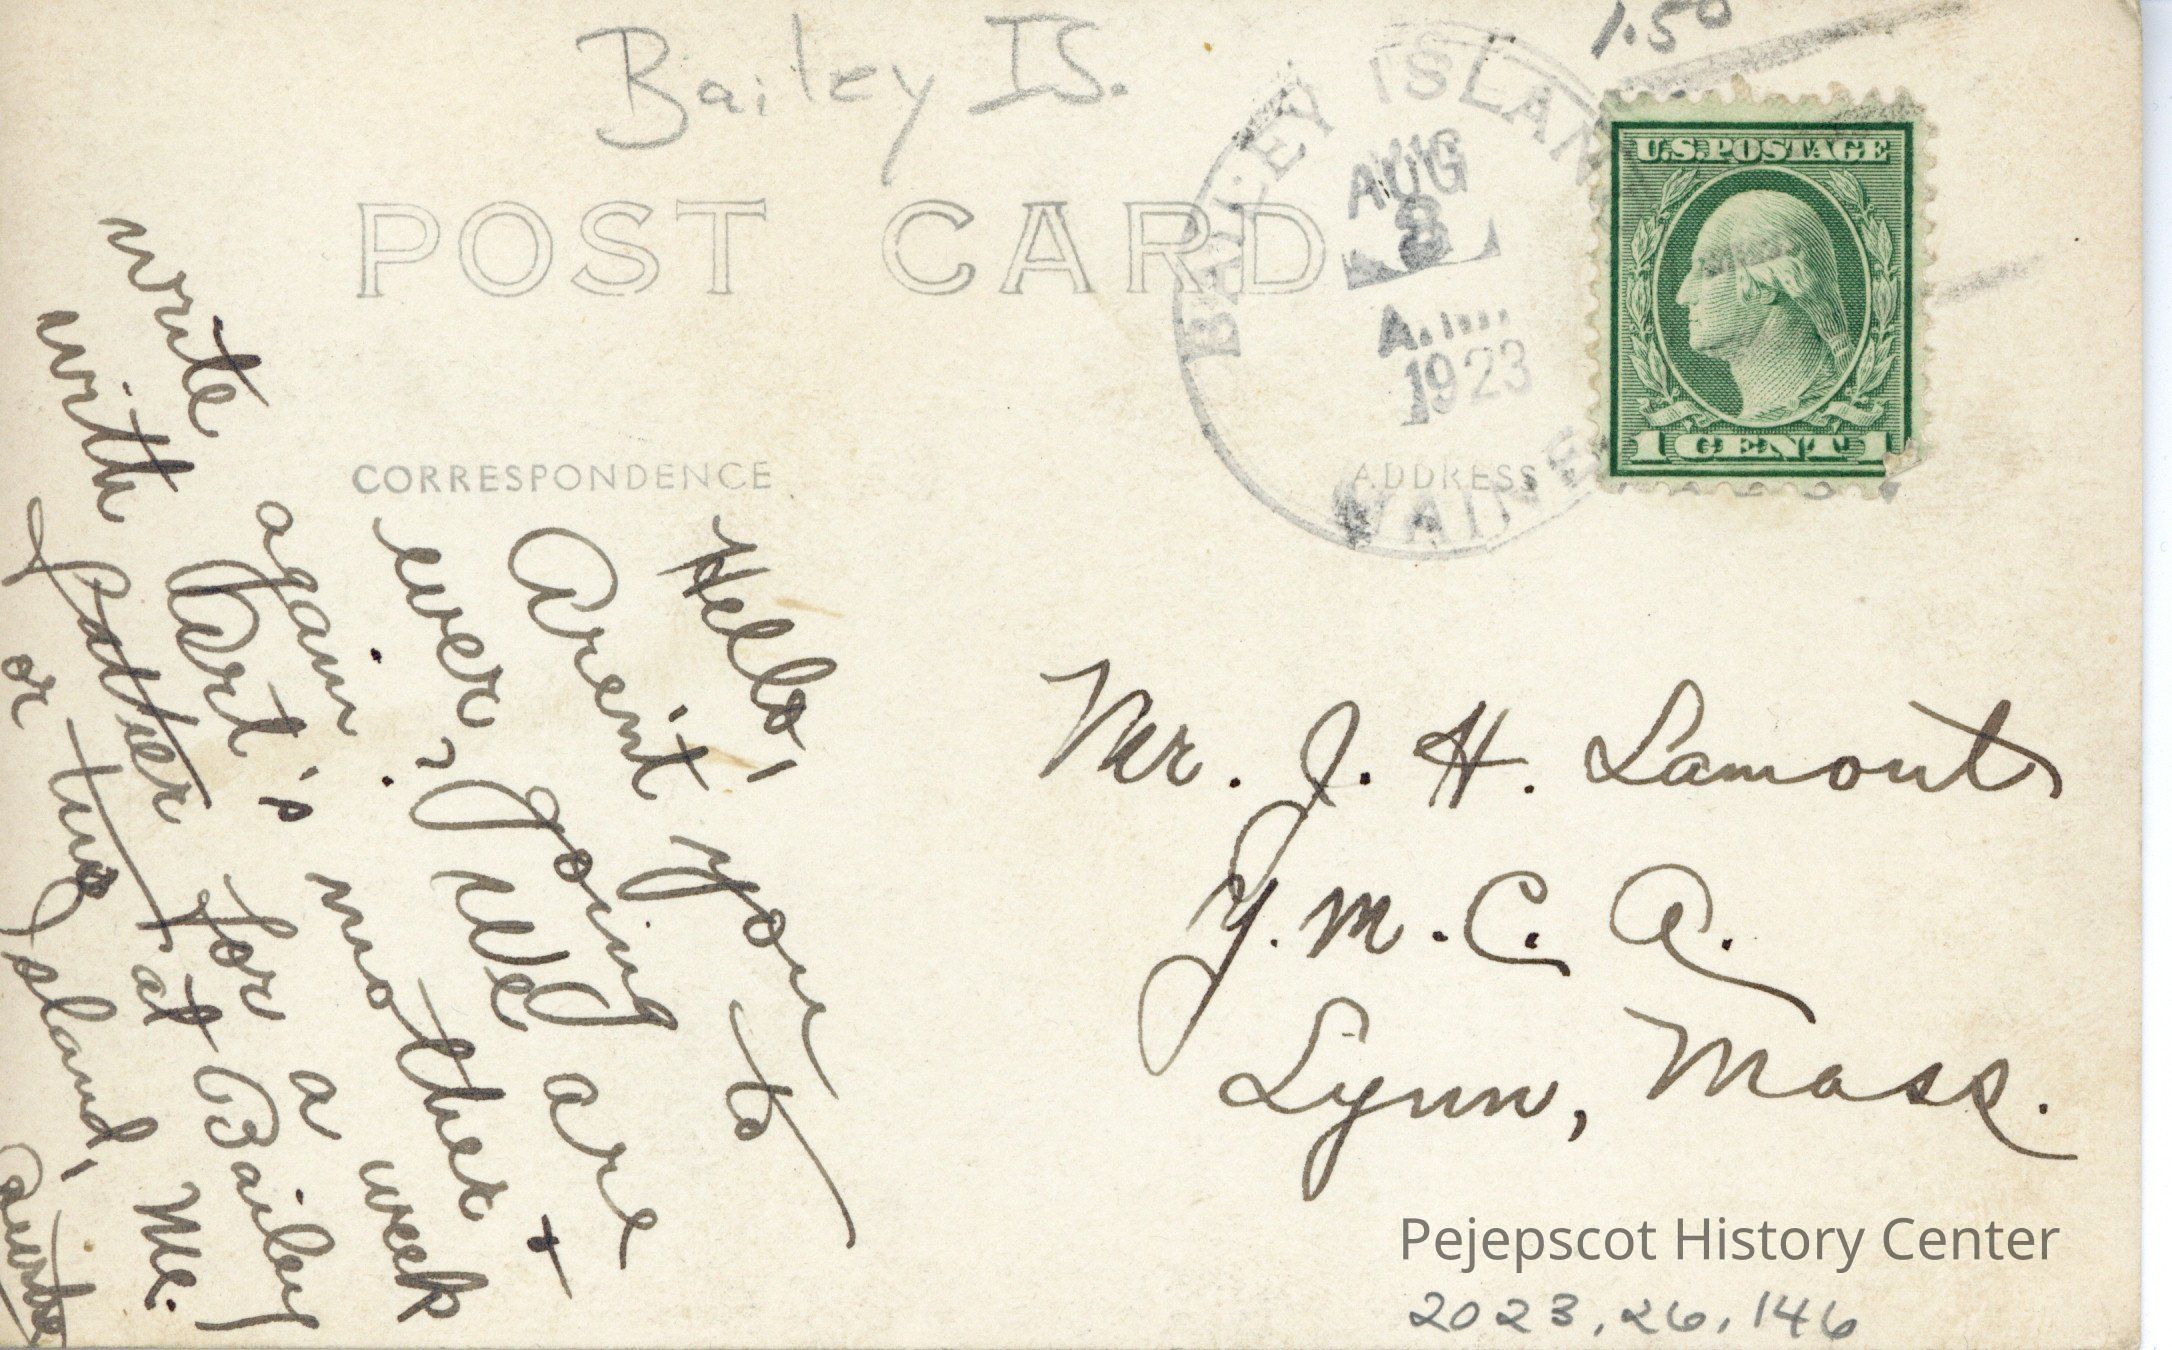 Bailey IS.
1.50
POST CARD
BAILEY ISLAND
AUG
8
A.M.
1923
MAINE
U.S. POSTAGE
1 CENT 1
CORRESPONDENCE
ADDRESS
Hello,
Arent you
ever going to
write again. We are
with Bert's mother +
father for a week
or two at Bailey
Island, Me.
Mr. J. H. Lamont
Y. M. C. A.
Lynn, Mass.
Pejepscot History Center
2023.26.146